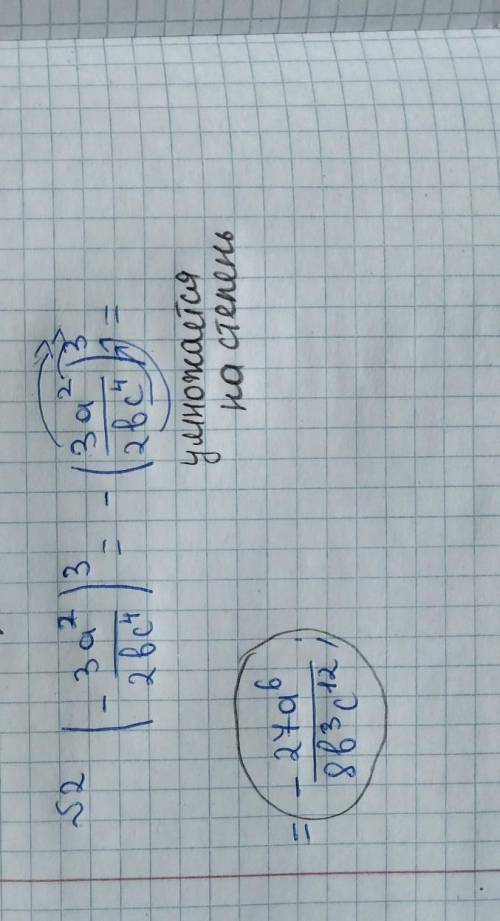 №2 (- 3a²/2bc⁴)³ = - (3a²/2bc⁴)³ =
умножается
на степень
= - 27a⁶/8b³c¹²,